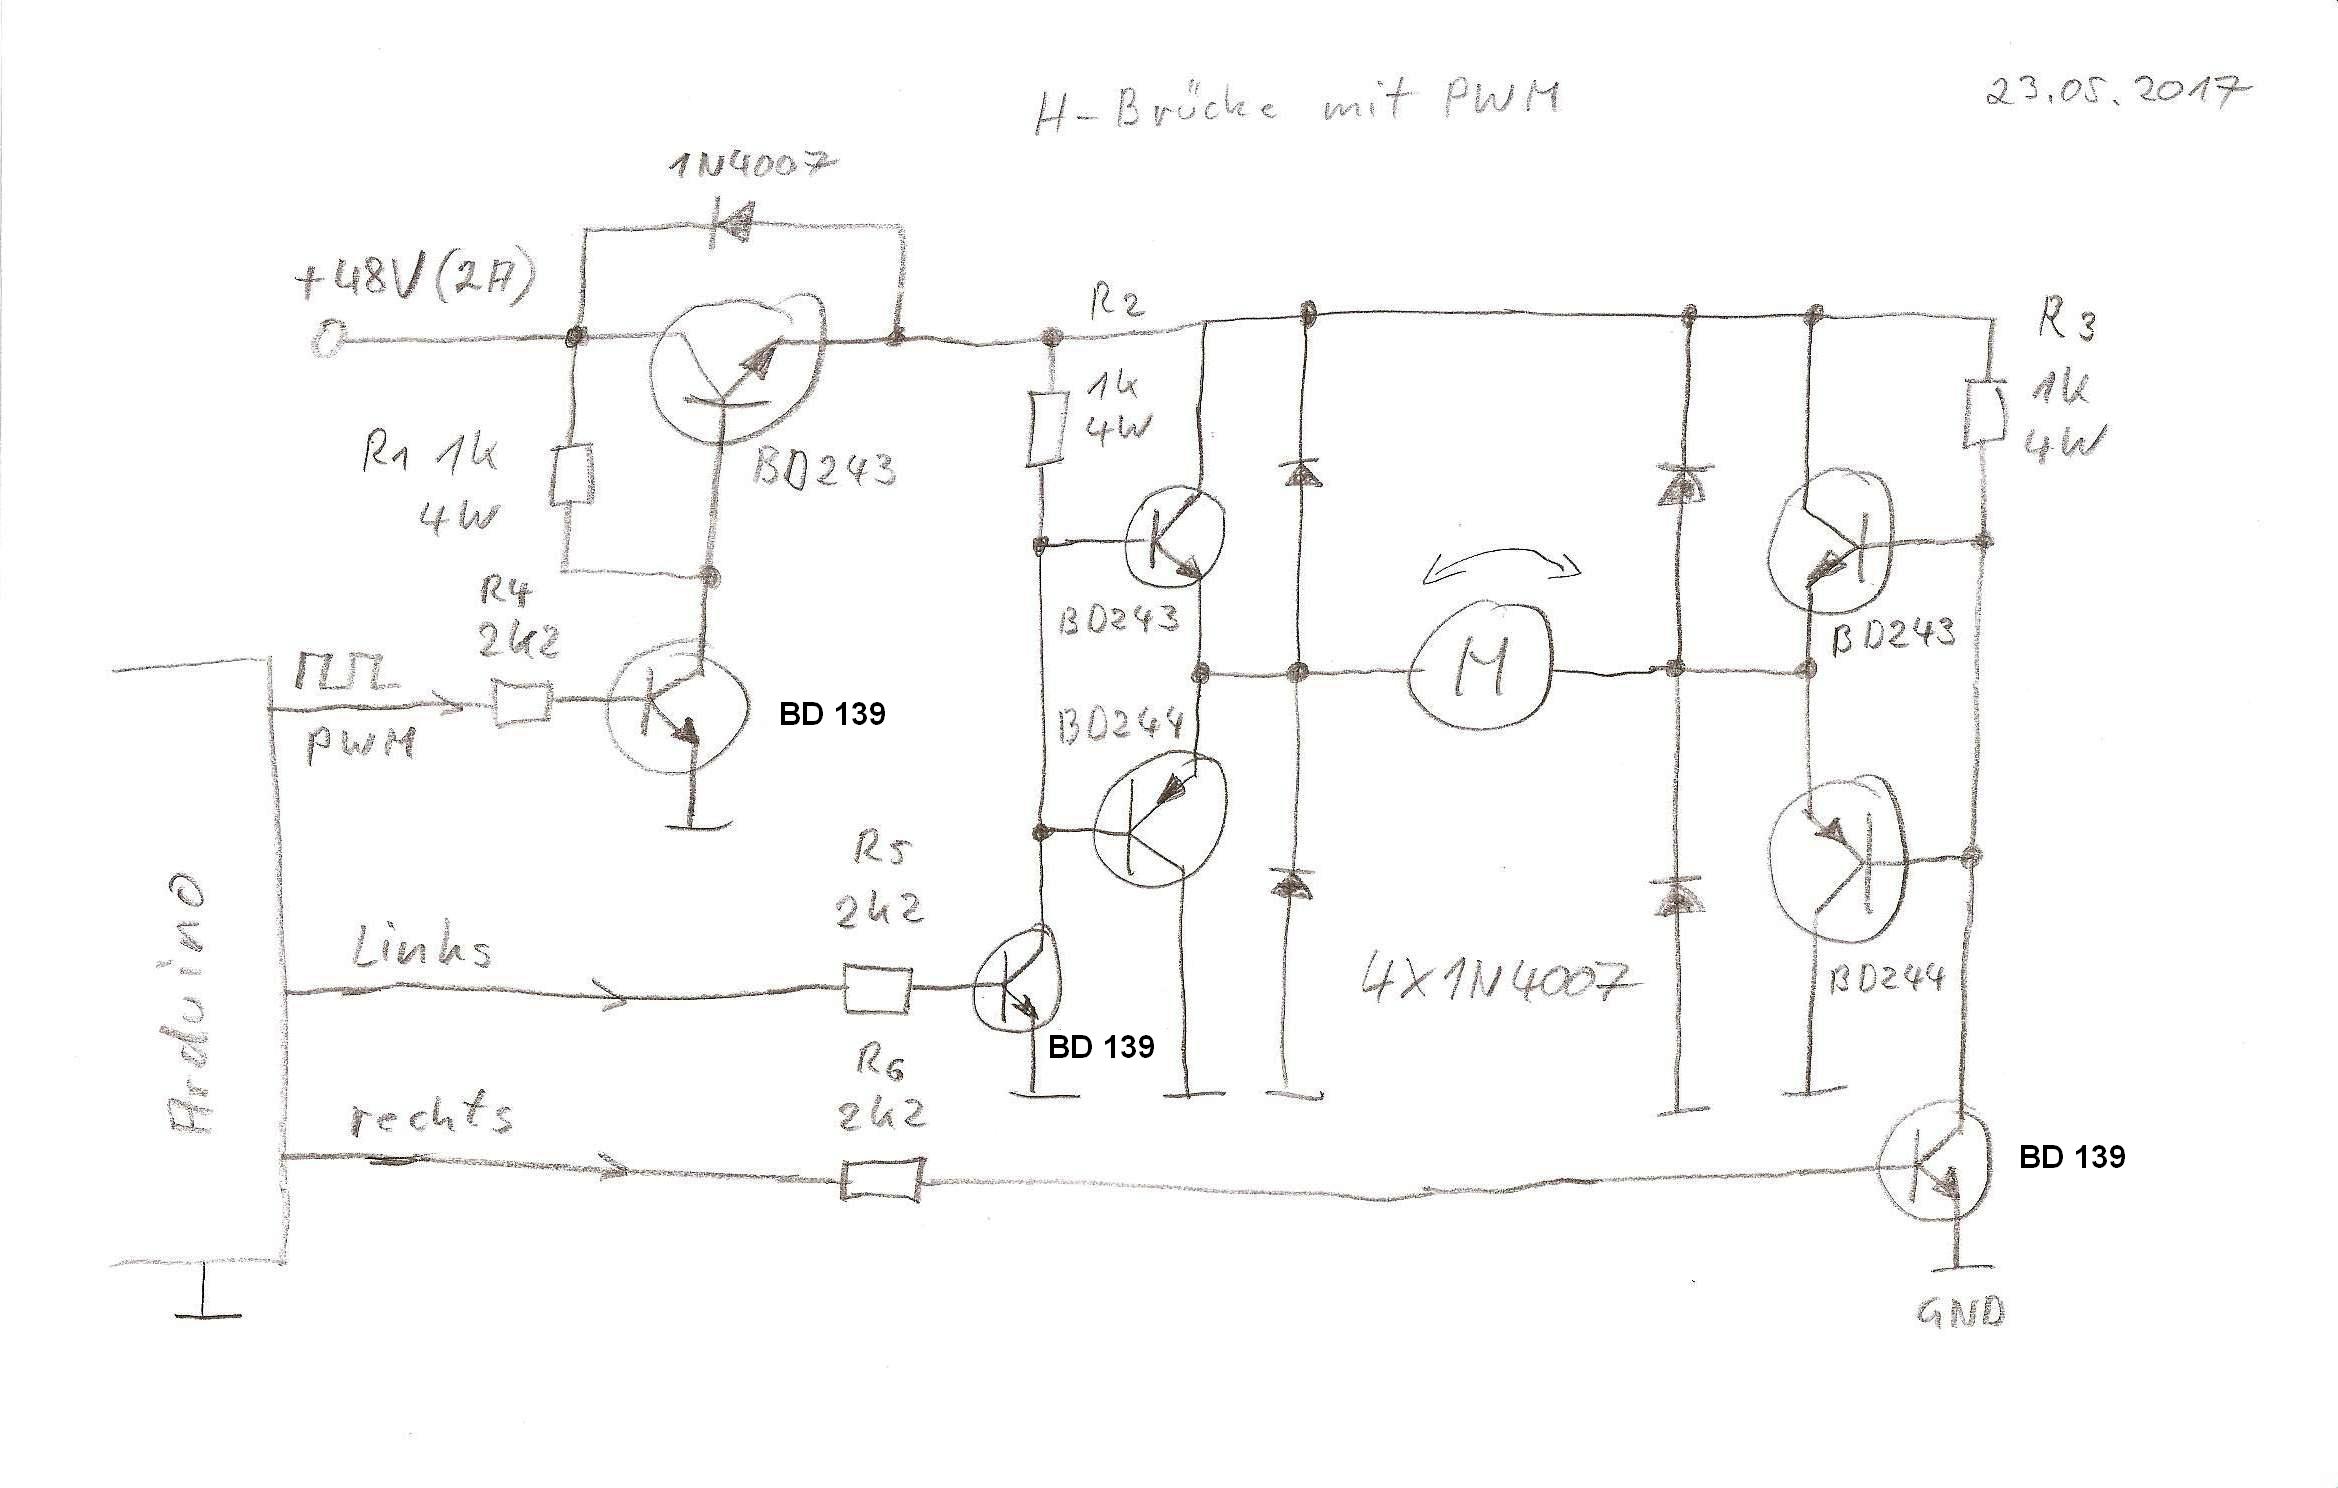 H-Brücke mit PWM
23.05.2017
1N4007
+48V(2A)
R2
R3
1k
4W
1k
4W
R1 1k
4W
BD243
R4
2k2
BD243
BD243
M
PWM
BD 139
BD244
R5
2k2
Links
4X1N4007
BD244
BD 139
R6
2k2
rechts
BD 139
Arduino
GND